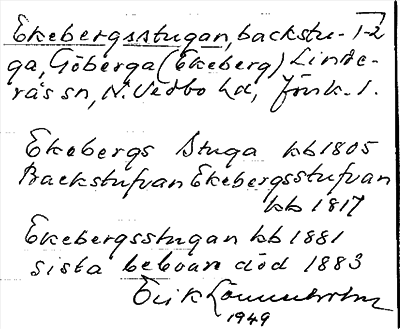 Ekebergsstugan, backstu- 1-2
ga, Göberga (Ekeberg) Linde-
rås sn, N. Vedbo hd, Jönk. l.
Ekebergs Stuga kb 1805
Backstufvan Ekebergsstufvan
kb 1817
Ekebergsstugan kb 1881
sista beboan död 1883
Erik Lönnerholm
1949